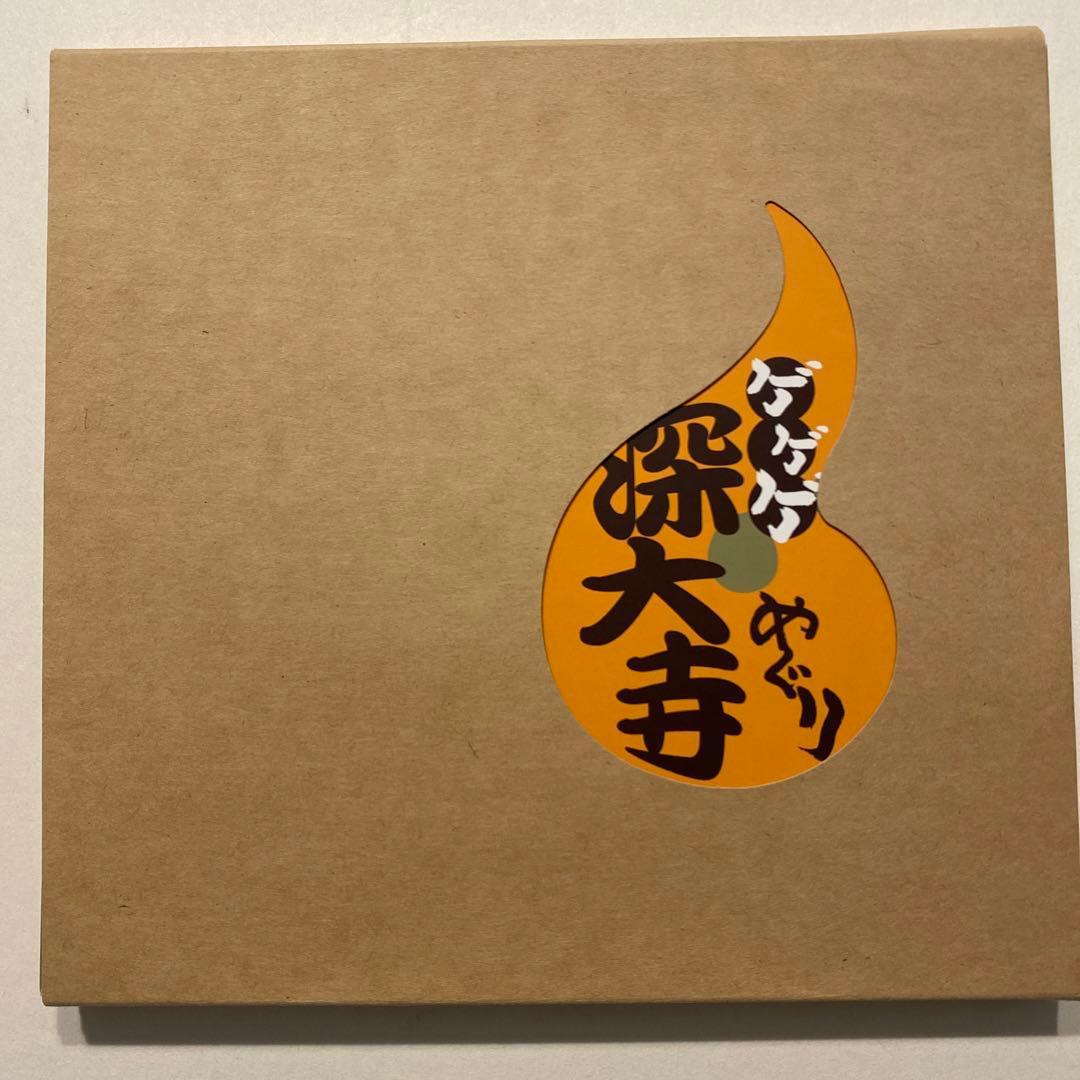 ゲゲゲ
深大寺
めぐり